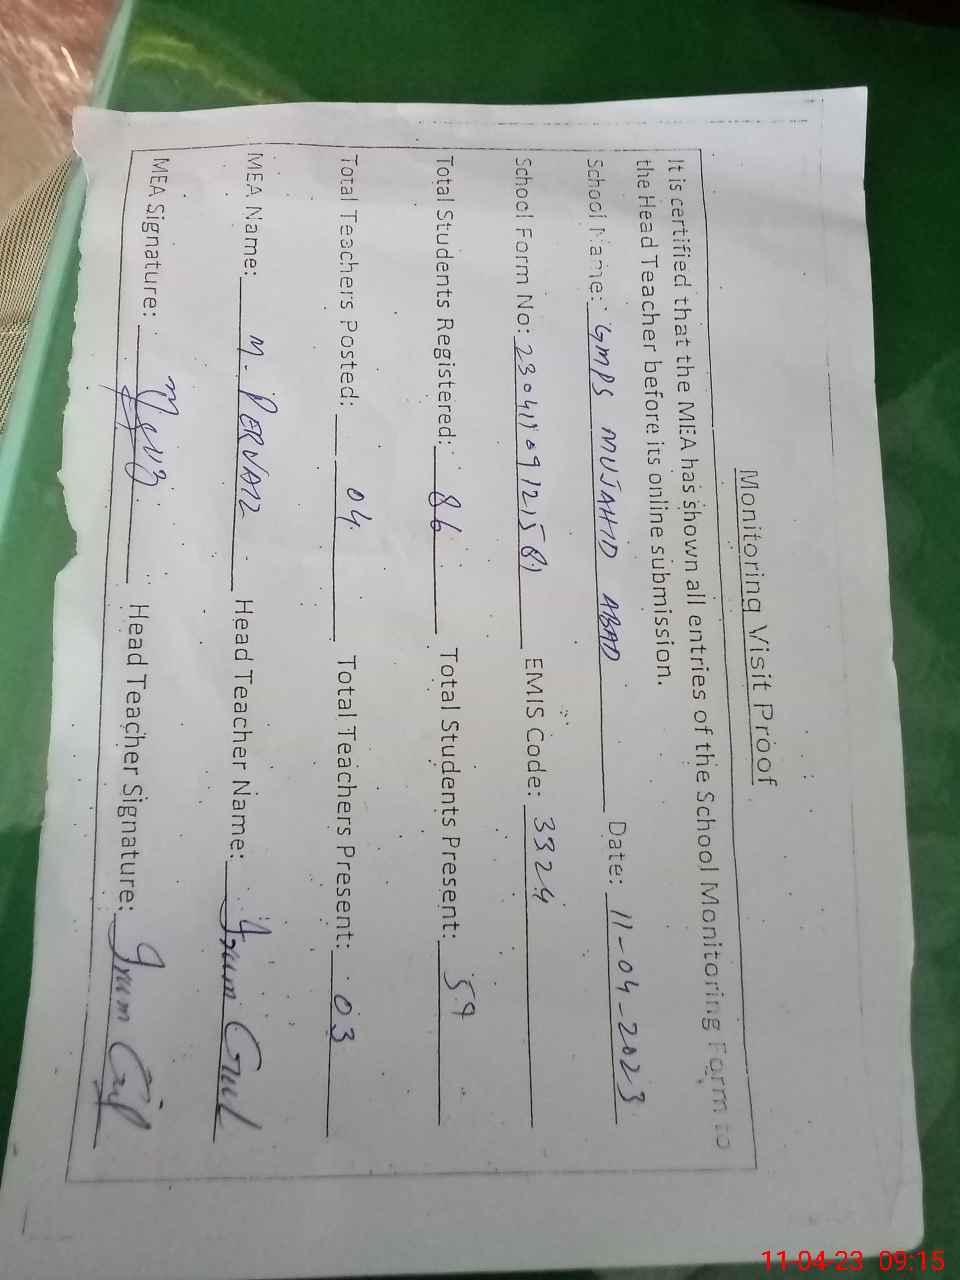 Monitoring Visit Proof
It is certified that the MEA has shown all entries of the School Monitoring Form to
the Head Teacher before its online submission.
School Name: GMPS MUJAHID ABAD Date: 11-04-2023
School Form No: EMIS Code: 3324
Total Students Registered: 86 Total Students Present: 59
Total Teachers Posted: 04 Total Teachers Present: 03
MEA Name: M. PERVAIZ Head Teacher Name: Irum Gul
MEA Signature: Head Teacher Signature: Irum Gul
11-04-23 09:15